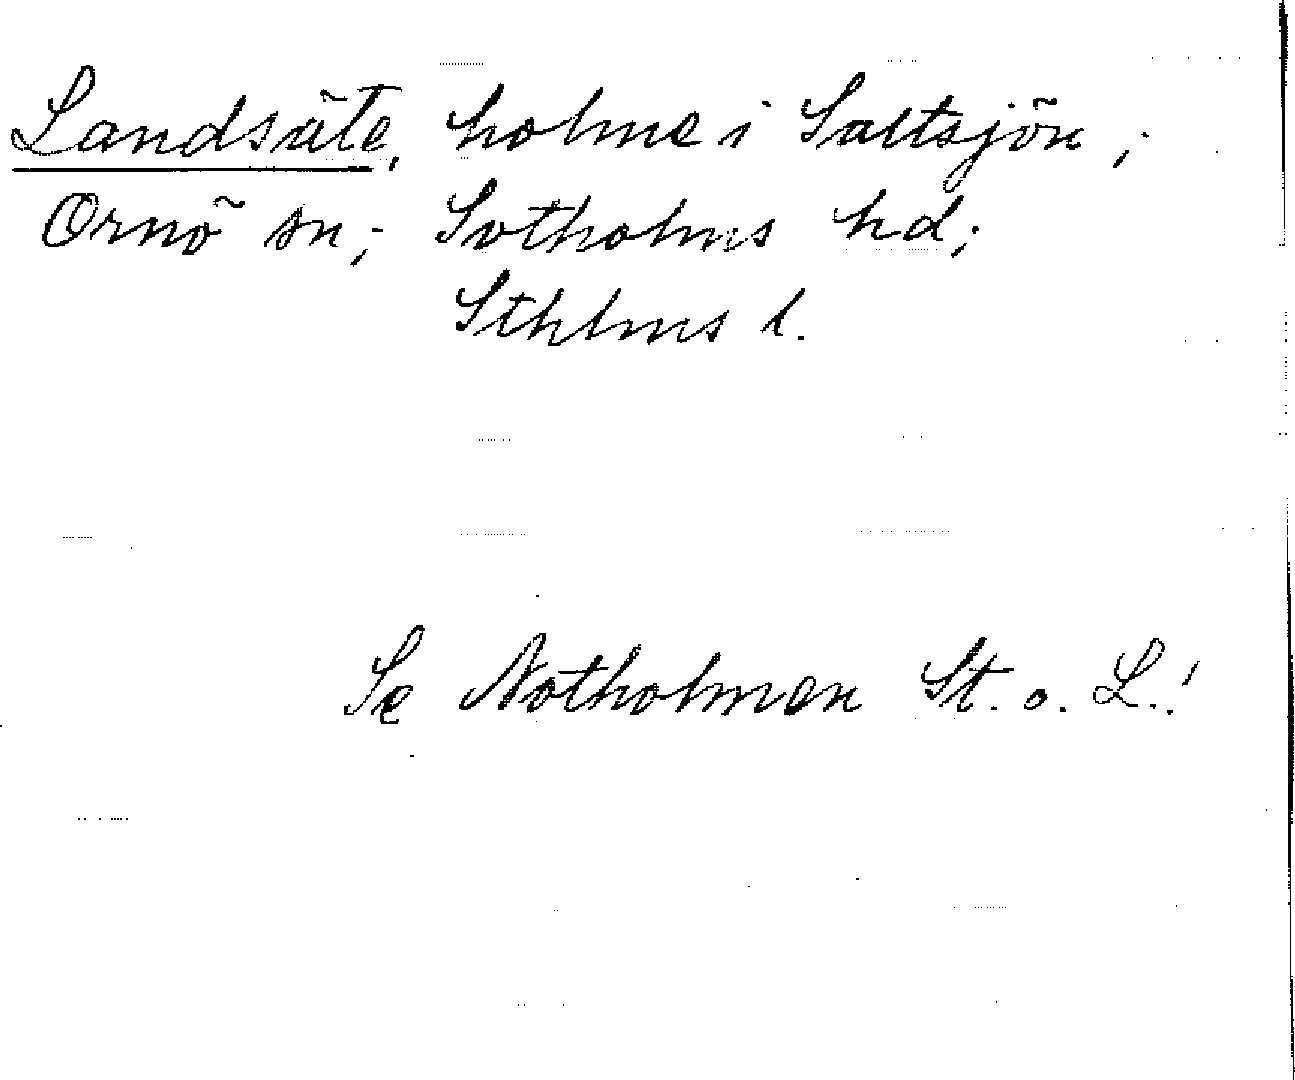 Landsäte, holme i Saltsjön;
Ornö sn; Sotholms hd;
Sthlms l.
Se Notholmen St. o. L.!